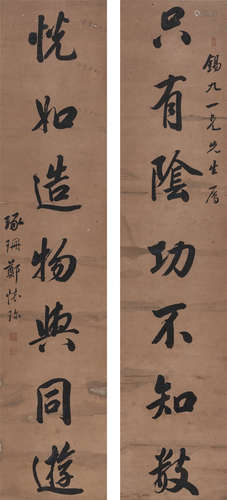 錫九一兄先生属
只有陰功不知數
恍如造物與同遊
琢珊鄭懷